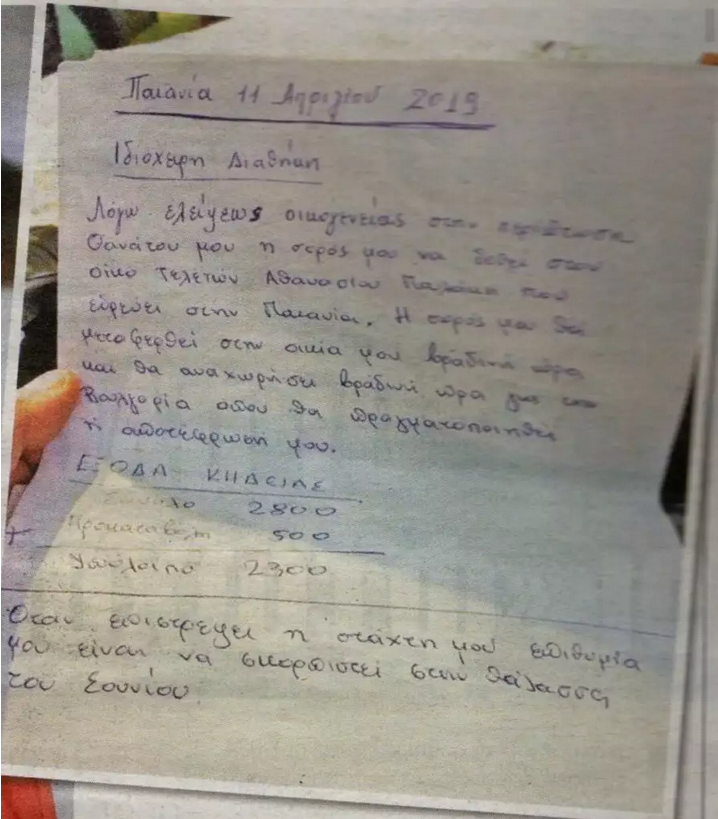 Παιανία 11 Απριλίου 2019
Ιδιόχειρη Διαθήκη
Λόγω ελείψεως οικογένειας στην περίπτωση
θανάτου μου η σορός μου να δοθεί στον
οίκο τελετών Αθανασίου που
εδρεύει στην Παιανία. Η σορός μου θα
μεταφερθεί στην οικία μου βραδινή ώρα
και θα αναχωρήσει βραδινή ώρα για την
Βουλγαρία οπου θα πραγματοποιηθεί
η αποτέφρωση μου.
ΕΞΟΔΑ ΚΗΔΕΙΑΣ
Σύνολο 2800
Προκαταβολη 500
Υπόλοιπο 2300
Οταν επιστρεψει η στάχτη μου επιθυμία
μου είναι να σκορπιστεί στην θάλασσα
του Σουνίου